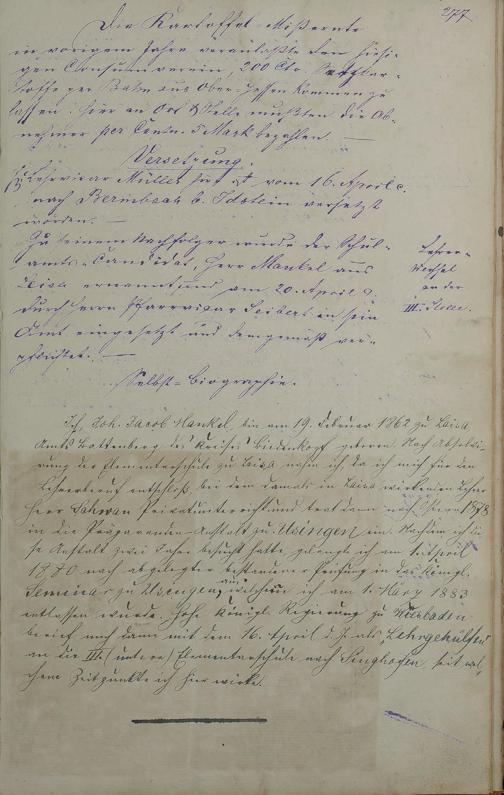 277
Die Kartoffel-Mißernte
im vorigem Jahre veranlaßte den hiesi-
gen Consumverein, 200 Ctr. Kartoffel-
per Bahn aus Ober-Hessen kommen zu
lassen; hier an Ort & Stelle mußten die Ab-
nehmer per Centn. 5 Mark bezahlen. —
Versetzung.
Lehrvicar Müller hier ist vom 16. April c.
nach Bermbach b. Idstein versetzt
worden. —
Zu seinem Nachfolger wurde der Schul-
amts-Candidat, Herr Mankel aus
Laisa ernannt und am 20. April
durch Herrn Pfarrvicar Seibert in sein
Amt eingesetzt und demgemäß ver-
pflichtet. —
Lehrer-
wechsel
an der
III. Stelle.
Selbst-Biographie.
Ich, Joh. Jacob Mankel, bin am 19. Februar 1862 zu Laisa
Amts Battenberg des Kreises Biedenkopf geboren. Nach Absolvi-
rung der Elementarschule zu Laisa nahm ich, da ich mich für den
Lehrerberuf entschloß, bei dem damals in Laisa wirkenden Lehrer
Herr Privatunterricht und trat dann 1878
in die Präparanden-Anstalt zu Usingen ein. Nachdem ich die-
se Anstalt zwei Jahre besucht hatte, gelangte ich am 1. April
1880 nach abgelegter bestandener Prüfung in das Königl.
Seminar zu Usingen, aus welchem ich am 1. März 1883
entlassen wurde. Hohe Königl. Regierung zu Wiesbaden
berief mich dann mit dem 16. April d. J. als Lehrgehülfen
an die III. (untere) Elementarschule nach Singhofen, seit wel-
chem Zeitpunkte ich hier wirke.